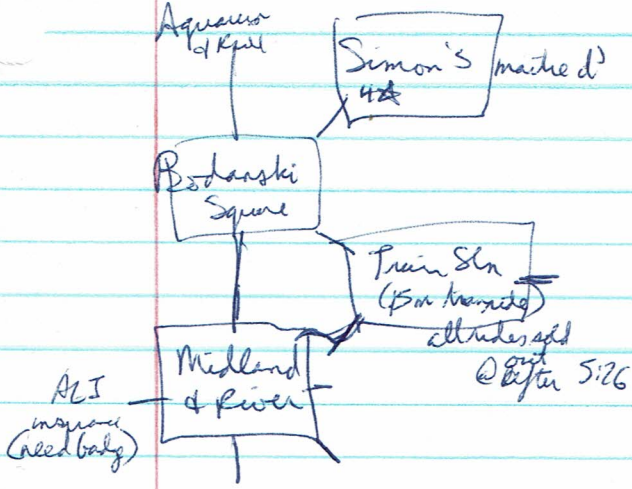 Aquarium
& River
Simon's
4☆
maitre d'
Bodanski
Square
Train Stn
(15m train ride)
all rides sold
out
@ after 5:26
Midland
& River
ALI
insurance
(need badg)